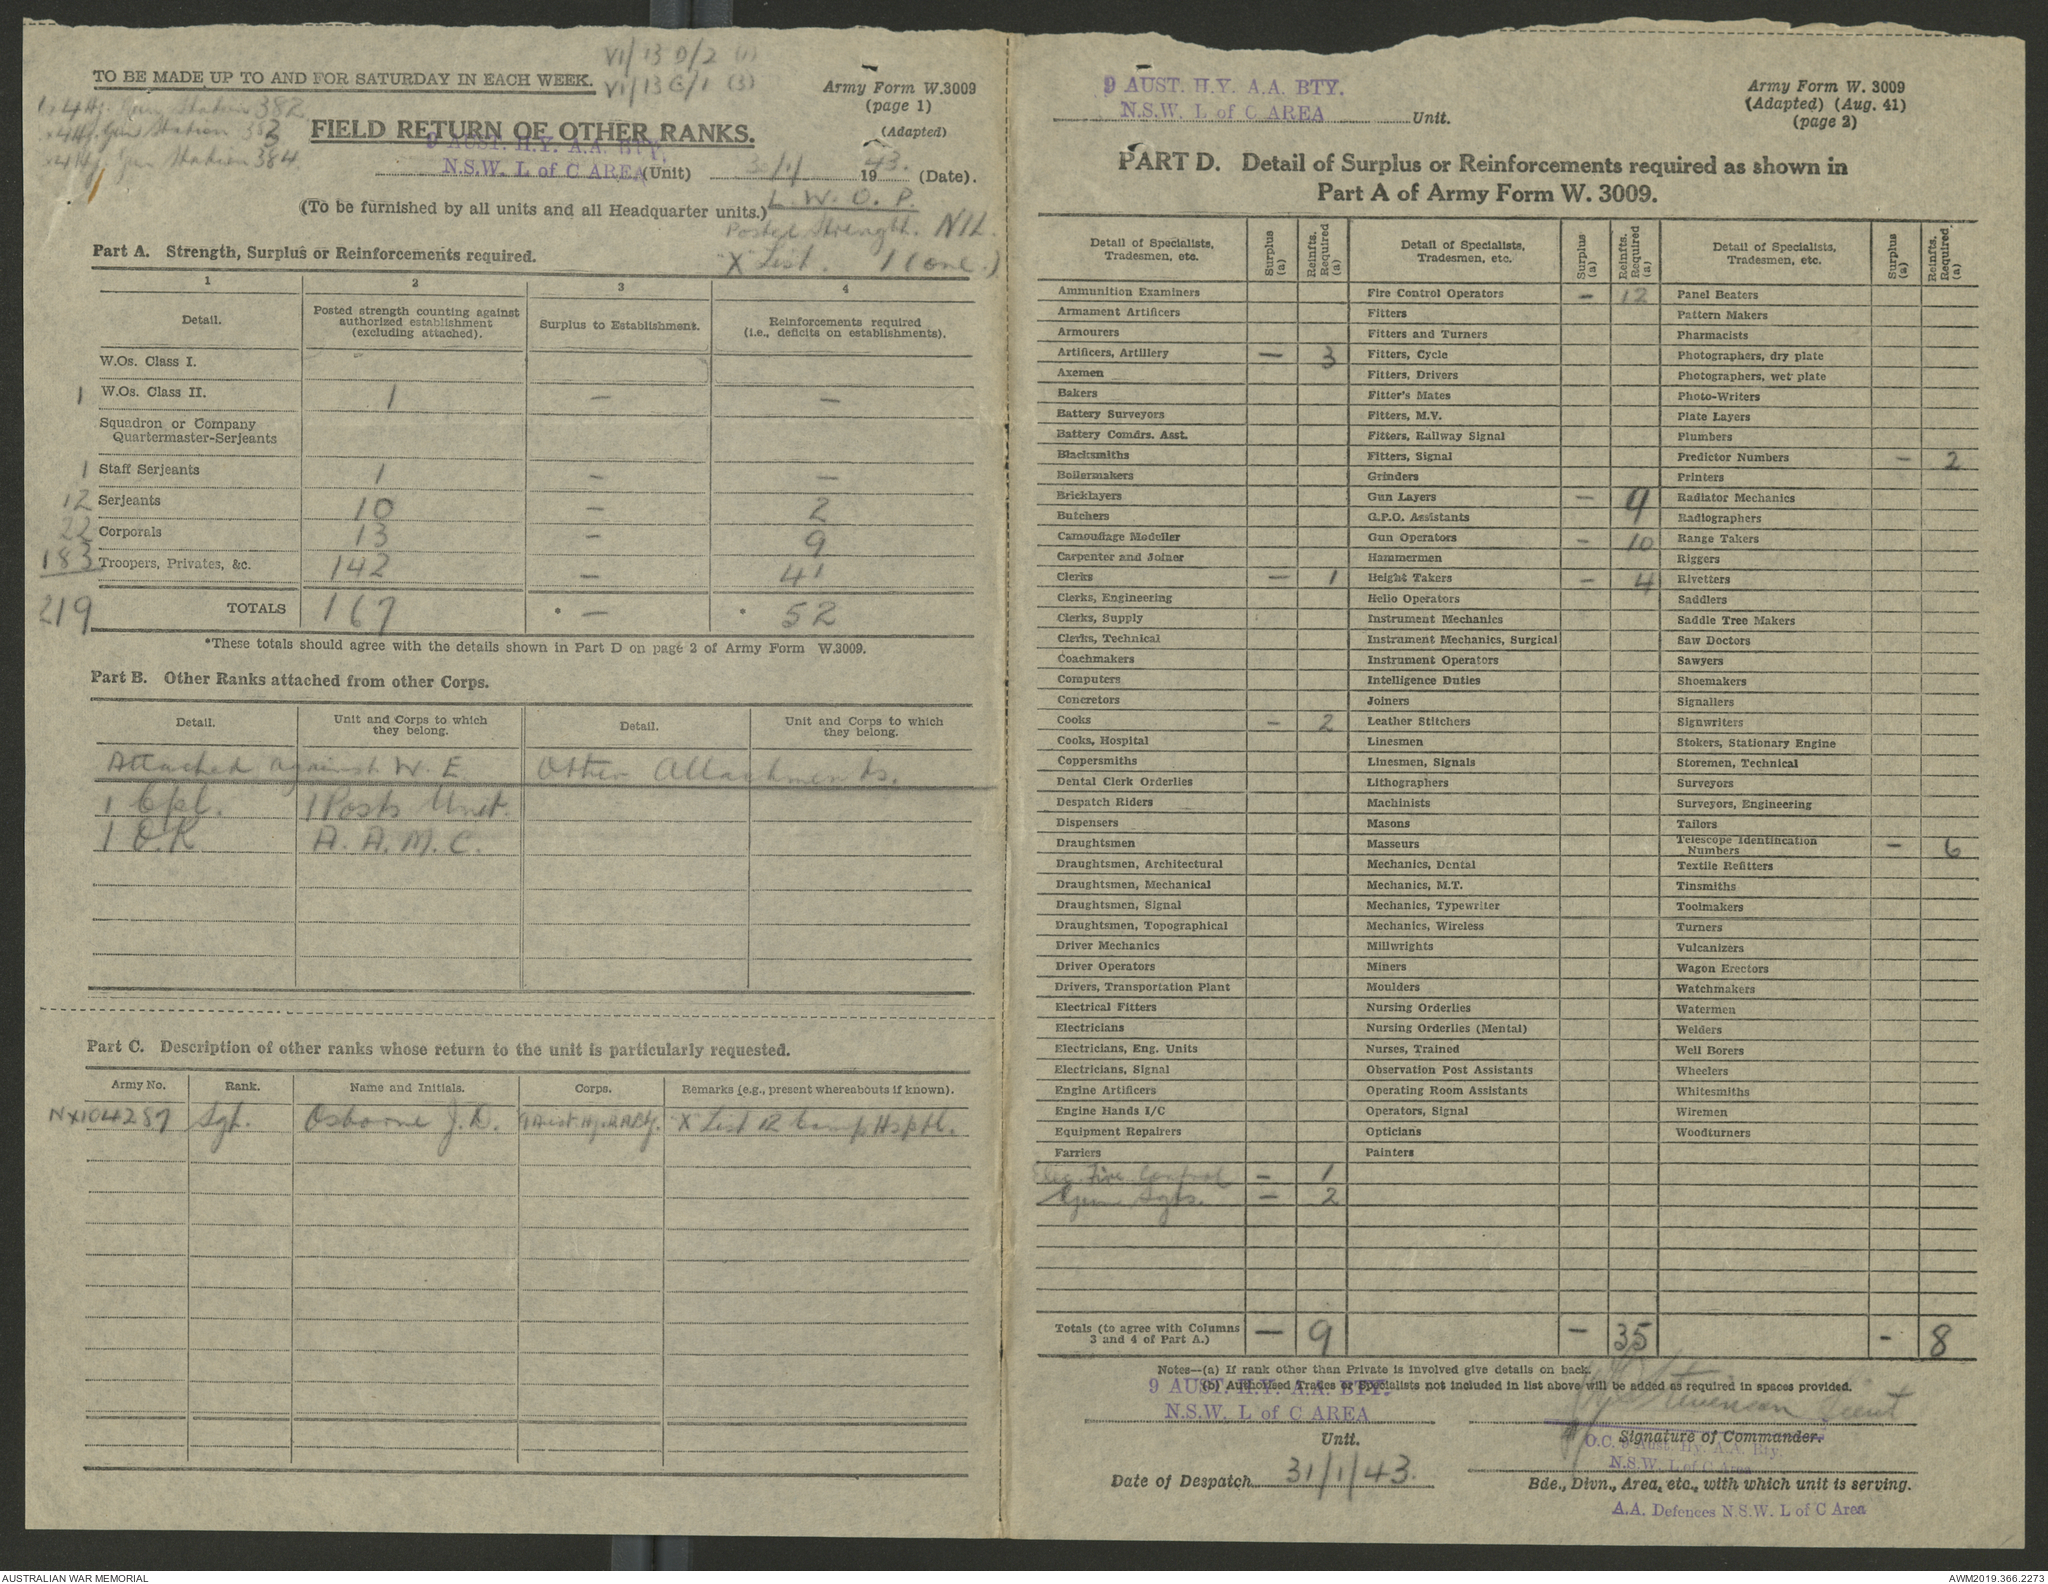 VI/13 D/2 (1)
VI/13 G/1 (3)
TO BE MADE UP TO AND FOR SATURDAY IN EACH WEEK.
Army Form W.3009
(page 1)
(Adapted)
1 x 4 Hy. Gun Station 382
x 4 Hy. Gun Station 383
x 4 Hy. Gun Station 384
FIELD RETURN OF OTHER RANKS.
9 AUST. H.Y. A.A. BTY.
N.S.W. L of C AREA (Unit) 30/1 1943. (Date).
(To be furnished by all units and all Headquarter units.)
L. W. O. P.
Posted Strength. NIL.
X List. 1 (one.)
Part A. Strength, Surplus or Reinforcements required.
1 2 3 4
Detail. Posted strength counting against authorized establishment (excluding attached). Surplus to Establishment. Reinforcements required (i.e., deficits on establishments).
W.Os. Class I.
1 W.Os. Class II. 1 — —
Squadron or Company
Quartermaster-Serjeants
1 Staff Serjeants 1 — —
12 Serjeants 10 — 2
22 Corporals 13 — 9
183 Troopers, Privates, &c. 142 — 41
219 TOTALS 167 * — * 52
*These totals should agree with the details shown in Part D on page 2 of Army Form W.3009.
Part B. Other Ranks attached from other Corps.
Detail. Unit and Corps to which they belong. Detail. Unit and Corps to which they belong.
Attached against W. E. Other Attachments.
1 Cpl. 1 Posts Unit.
1 O.R. A. A. M. C.
Part C. Description of other ranks whose return to the unit is particularly requested.
Army No. Rank. Name and Initials. Corps. Remarks (e.g., present whereabouts if known).
NX104287 Sgt. Osborne J. D. 9 Aust. Hy. A.A. Bty. X List 12 Camp Hsptl.
9 AUST. H.Y. A.A. BTY.
N.S.W. L of C AREA Unit.
Army Form W. 3009
(Adapted) (Aug. 41)
(page 2)
PART D. Detail of Surplus or Reinforcements required as shown in
Part A of Army Form W. 3009.
Detail of Specialists, Tradesmen, etc. Surplus (a) Reinfts. Required (a) Detail of Specialists, Tradesmen, etc. Surplus (a) Reinfts. Required (a) Detail of Specialists, Tradesmen, etc. Surplus (a) Reinfts. Required (a)
Ammunition Examiners Fire Control Operators — 12 Panel Beaters
Armament Artificers Fitters Pattern Makers
Armourers Fitters and Turners Pharmacists
Artificers, Artillery — 3 Fitters, Cycle Photographers, dry plate
Axemen Fitters, Drivers Photographers, wet plate
Bakers Fitter's Mates Photo-Writers
Battery Surveyors Fitters, M.V. Plate Layers
Battery Comdrs. Asst. Fitters, Railway Signal Plumbers
Blacksmiths Fitters, Signal Predictor Numbers — 2
Boilermakers Grinders Printers
Bricklayers Gun Layers — 9 Radiator Mechanics
Butchers G.P.O. Assistants Radiographers
Camouflage Modeller Gun Operators — 10 Range Takers
Carpenter and Joiner Hammermen Riggers
Clerks — 1 Height Takers — 4 Rivetters
Clerks, Engineering Helio Operators Saddlers
Clerks, Supply Instrument Mechanics Saddle Tree Makers
Clerks, Technical Instrument Mechanics, Surgical Saw Doctors
Coachmakers Instrument Operators Sawyers
Computers Intelligence Duties Shoemakers
Concretors Joiners Signallers
Cooks — 2 Leather Stitchers Signwriters
Cooks, Hospital Linesmen Stokers, Stationary Engine
Coppersmiths Linesmen, Signals Storemen, Technical
Dental Clerk Orderlies Lithographers Surveyors
Despatch Riders Machinists Surveyors, Engineering
Dispensers Masons Tailors
Draughtsmen Masseurs Telescope Identification Numbers — 6
Draughtsmen, Architectural Mechanics, Dental Textile Refitters
Draughtsmen, Mechanical Mechanics, M.T. Tinsmiths
Draughtsmen, Signal Mechanics, Typewriter Toolmakers
Draughtsmen, Topographical Mechanics, Wireless Turners
Driver Mechanics Millwrights Vulcanizers
Driver Operators Miners Wagon Erectors
Drivers, Transportation Plant Moulders Watchmakers
Electrical Fitters Nursing Orderlies Watermen
Electricians Nursing Orderlies (Mental) Welders
Electricians, Eng. Units Nurses, Trained Well Borers
Electricians, Signal Observation Post Assistants Wheelers
Engine Artificers Operating Room Assistants Whitesmiths
Engine Hands I/C Operators, Signal Wiremen
Equipment Repairers Opticians Woodturners
Farriers Painters
Elec. Fire Control — 1
Gun Sgts. — 2
Totals (to agree with Columns 3 and 4 of Part A.) — 9 — 35 - 8
Notes—(a) If rank other than Private is involved give details on back.
(b) Authorised Trades or Specialists not included in list above will be added as required in spaces provided.
9 AUST. H.Y. A.A. BTY.
N.S.W. L of C AREA
Unit.
Stevenson Lieut
Signature of Commander.
O.C. 9 Aust. Hy. A.A. Bty.
N.S.W. L of C Area
Date of Despatch 31/1/43.
Bde., Divn., Area, etc., with which unit is serving.
A.A. Defences N.S.W. L of C Area
AUSTRALIAN WAR MEMORIAL
AWM2019.366.2273